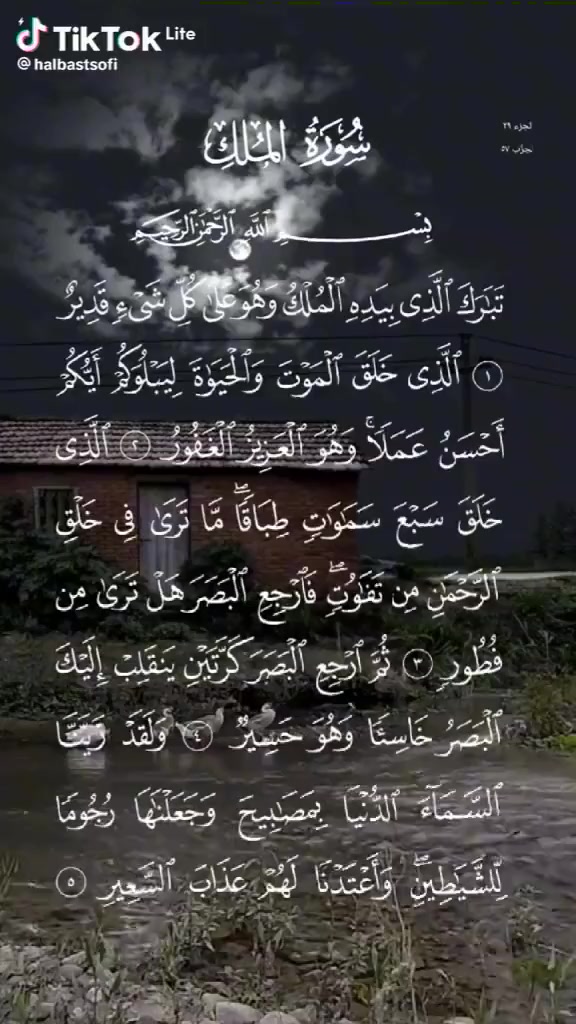 TikTok Lite
@halbastsofi
الجزء ٢٩
الحزب ٥٧
سُورَةُ المُلكِ
بِسۡمِ ٱللَّهِ ٱلرَّحۡمَٰنِ ٱلرَّحِيمِ
تَبَٰرَكَ ٱلَّذِى بِيَدِهِ ٱلۡمُلۡكُ وَهُوَ عَلَىٰ كُلِّ شَىۡءٍ قَدِيرٌ
١ ٱلَّذِى خَلَقَ ٱلۡمَوۡتَ وَٱلۡحَيَوٰةَ لِيَبۡلُوَكُمۡ أَيُّكُمۡ
أَحۡسَنُ عَمَلٗاۚ وَهُوَ ٱلۡعَزِيزُ ٱلۡغَفُورُ ٢ ٱلَّذِى
خَلَقَ سَبۡعَ سَمَٰوَٰتٖ طِبَاقٗاۖ مَّا تَرَىٰ فِى خَلۡقِ
ٱلرَّحۡمَٰنِ مِن تَفَٰوُتٖۖ فَٱرۡجِعِ ٱلۡبَصَرَ هَلۡ تَرَىٰ مِن
فُطُورٖ ٣ ثُمَّ ٱرۡجِعِ ٱلۡبَصَرَ كَرَّتَيۡنِ يَنقَلِبۡ إِلَيۡكَ
ٱلۡبَصَرُ خَاسِئٗا وَهُوَ حَسِيرٞ ٤ وَلَقَدۡ زَيَّنَّا
ٱلسَّمَآءَ ٱلدُّنۡيَا بِمَصَٰبِيحَ وَجَعَلۡنَٰهَا رُجُومٗا
لِّلشَّيَٰطِينِۖ وَأَعۡتَدۡنَا لَهُمۡ عَذَابَ ٱلسَّعِيرِ ٥